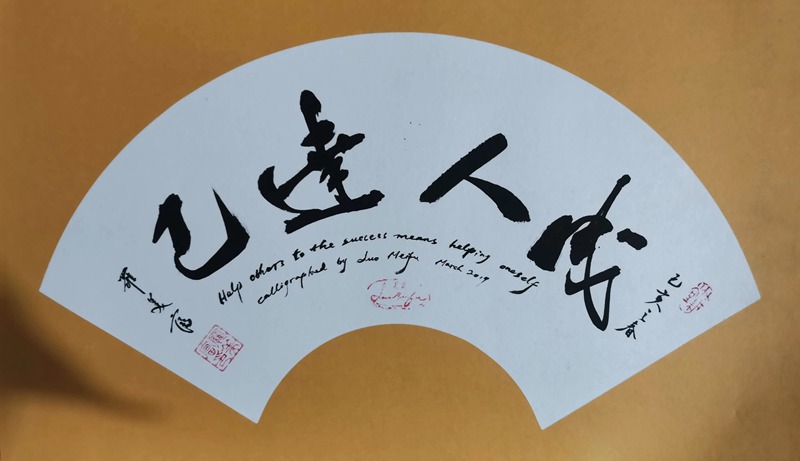 己亥之春
成人達己
Help others to the success means helping oneself
calligraphed by Luo Meifu March 2019